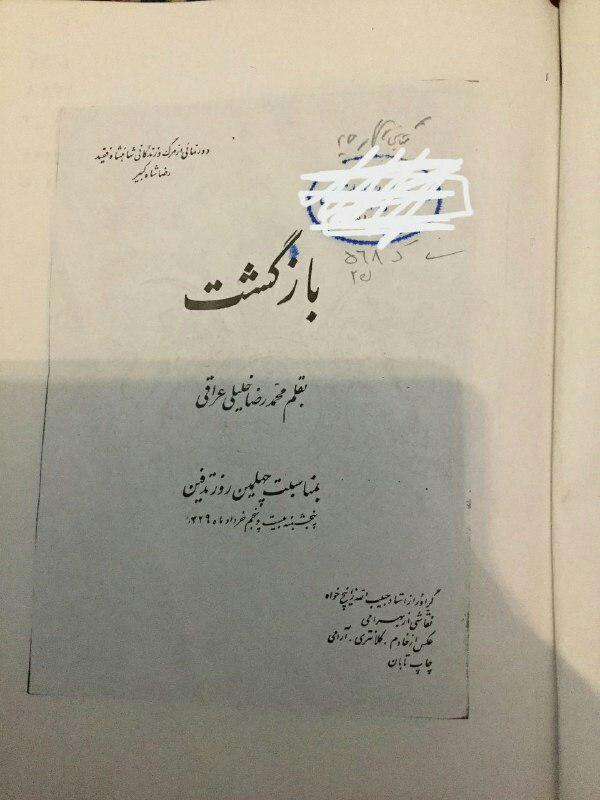 دورنمائی از مرگ و زندگانی شاهنشاه فقید
رضا شاه کبیر
۵۶۸
بازگشت
بقلم محمد رضا خلیلی عراقی
بمناسبت چهلمین روز تدفین
پنجشنبه بیست و پنجم خرداد ماه ۱۳۲۹
گراور از استاد حبیب الله زانیچ خواه
نقاشی از بهرامی
عکس از خادم . کلانتری . آرامی
چاپ تابان